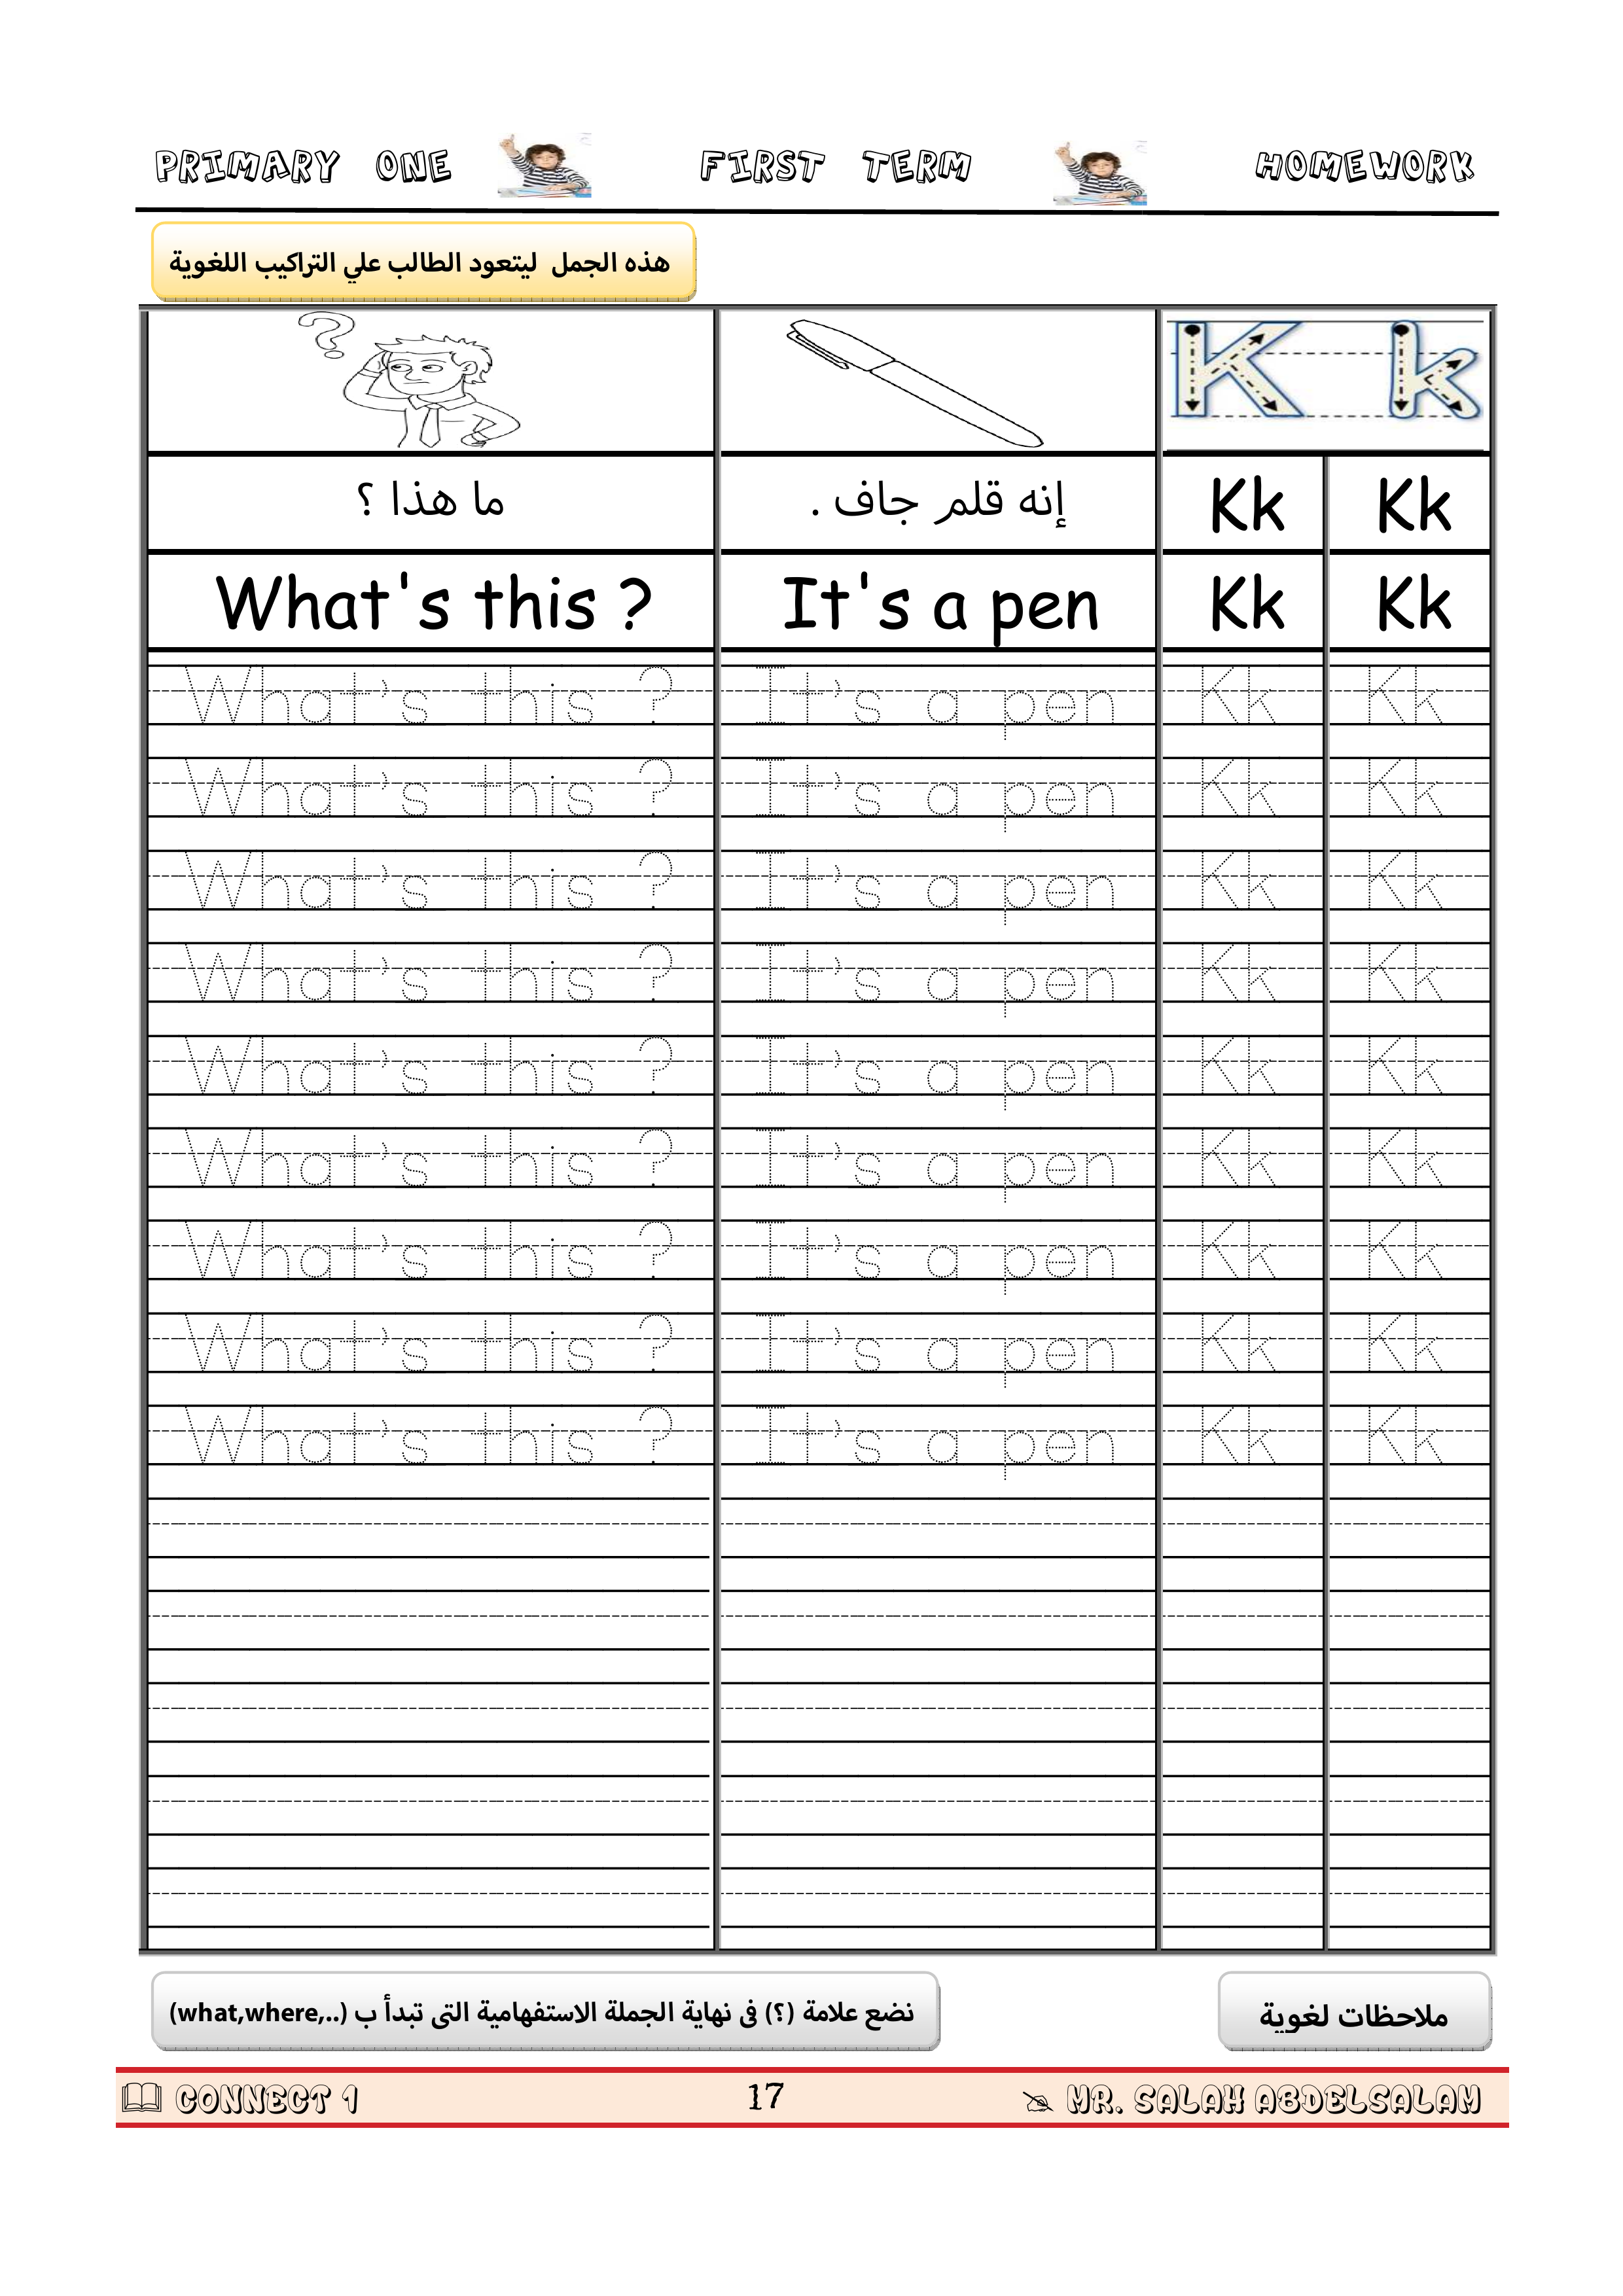 PRIMARY ONE FIRST TERM HOMEWORK
هذه الجمل ليتعود الطالب علي التراكيب اللغوية
K k
ما هذا ؟ إنه قلم جاف . Kk Kk
What's this ? It's a pen Kk Kk
What's this ? It's a pen Kk Kk
What's this ? It's a pen Kk Kk
What's this ? It's a pen Kk Kk
What's this ? It's a pen Kk Kk
What's this ? It's a pen Kk Kk
What's this ? It's a pen Kk Kk
What's this ? It's a pen Kk Kk
What's this ? It's a pen Kk Kk
What's this ? It's a pen Kk Kk
ملاحظات لغوية
نضع علامة (؟) فى نهاية الجملة الاستفهامية التى تبدأ ب (what,where,..)
CONNECT 1 17 MR. SALAH ABDELSALAM